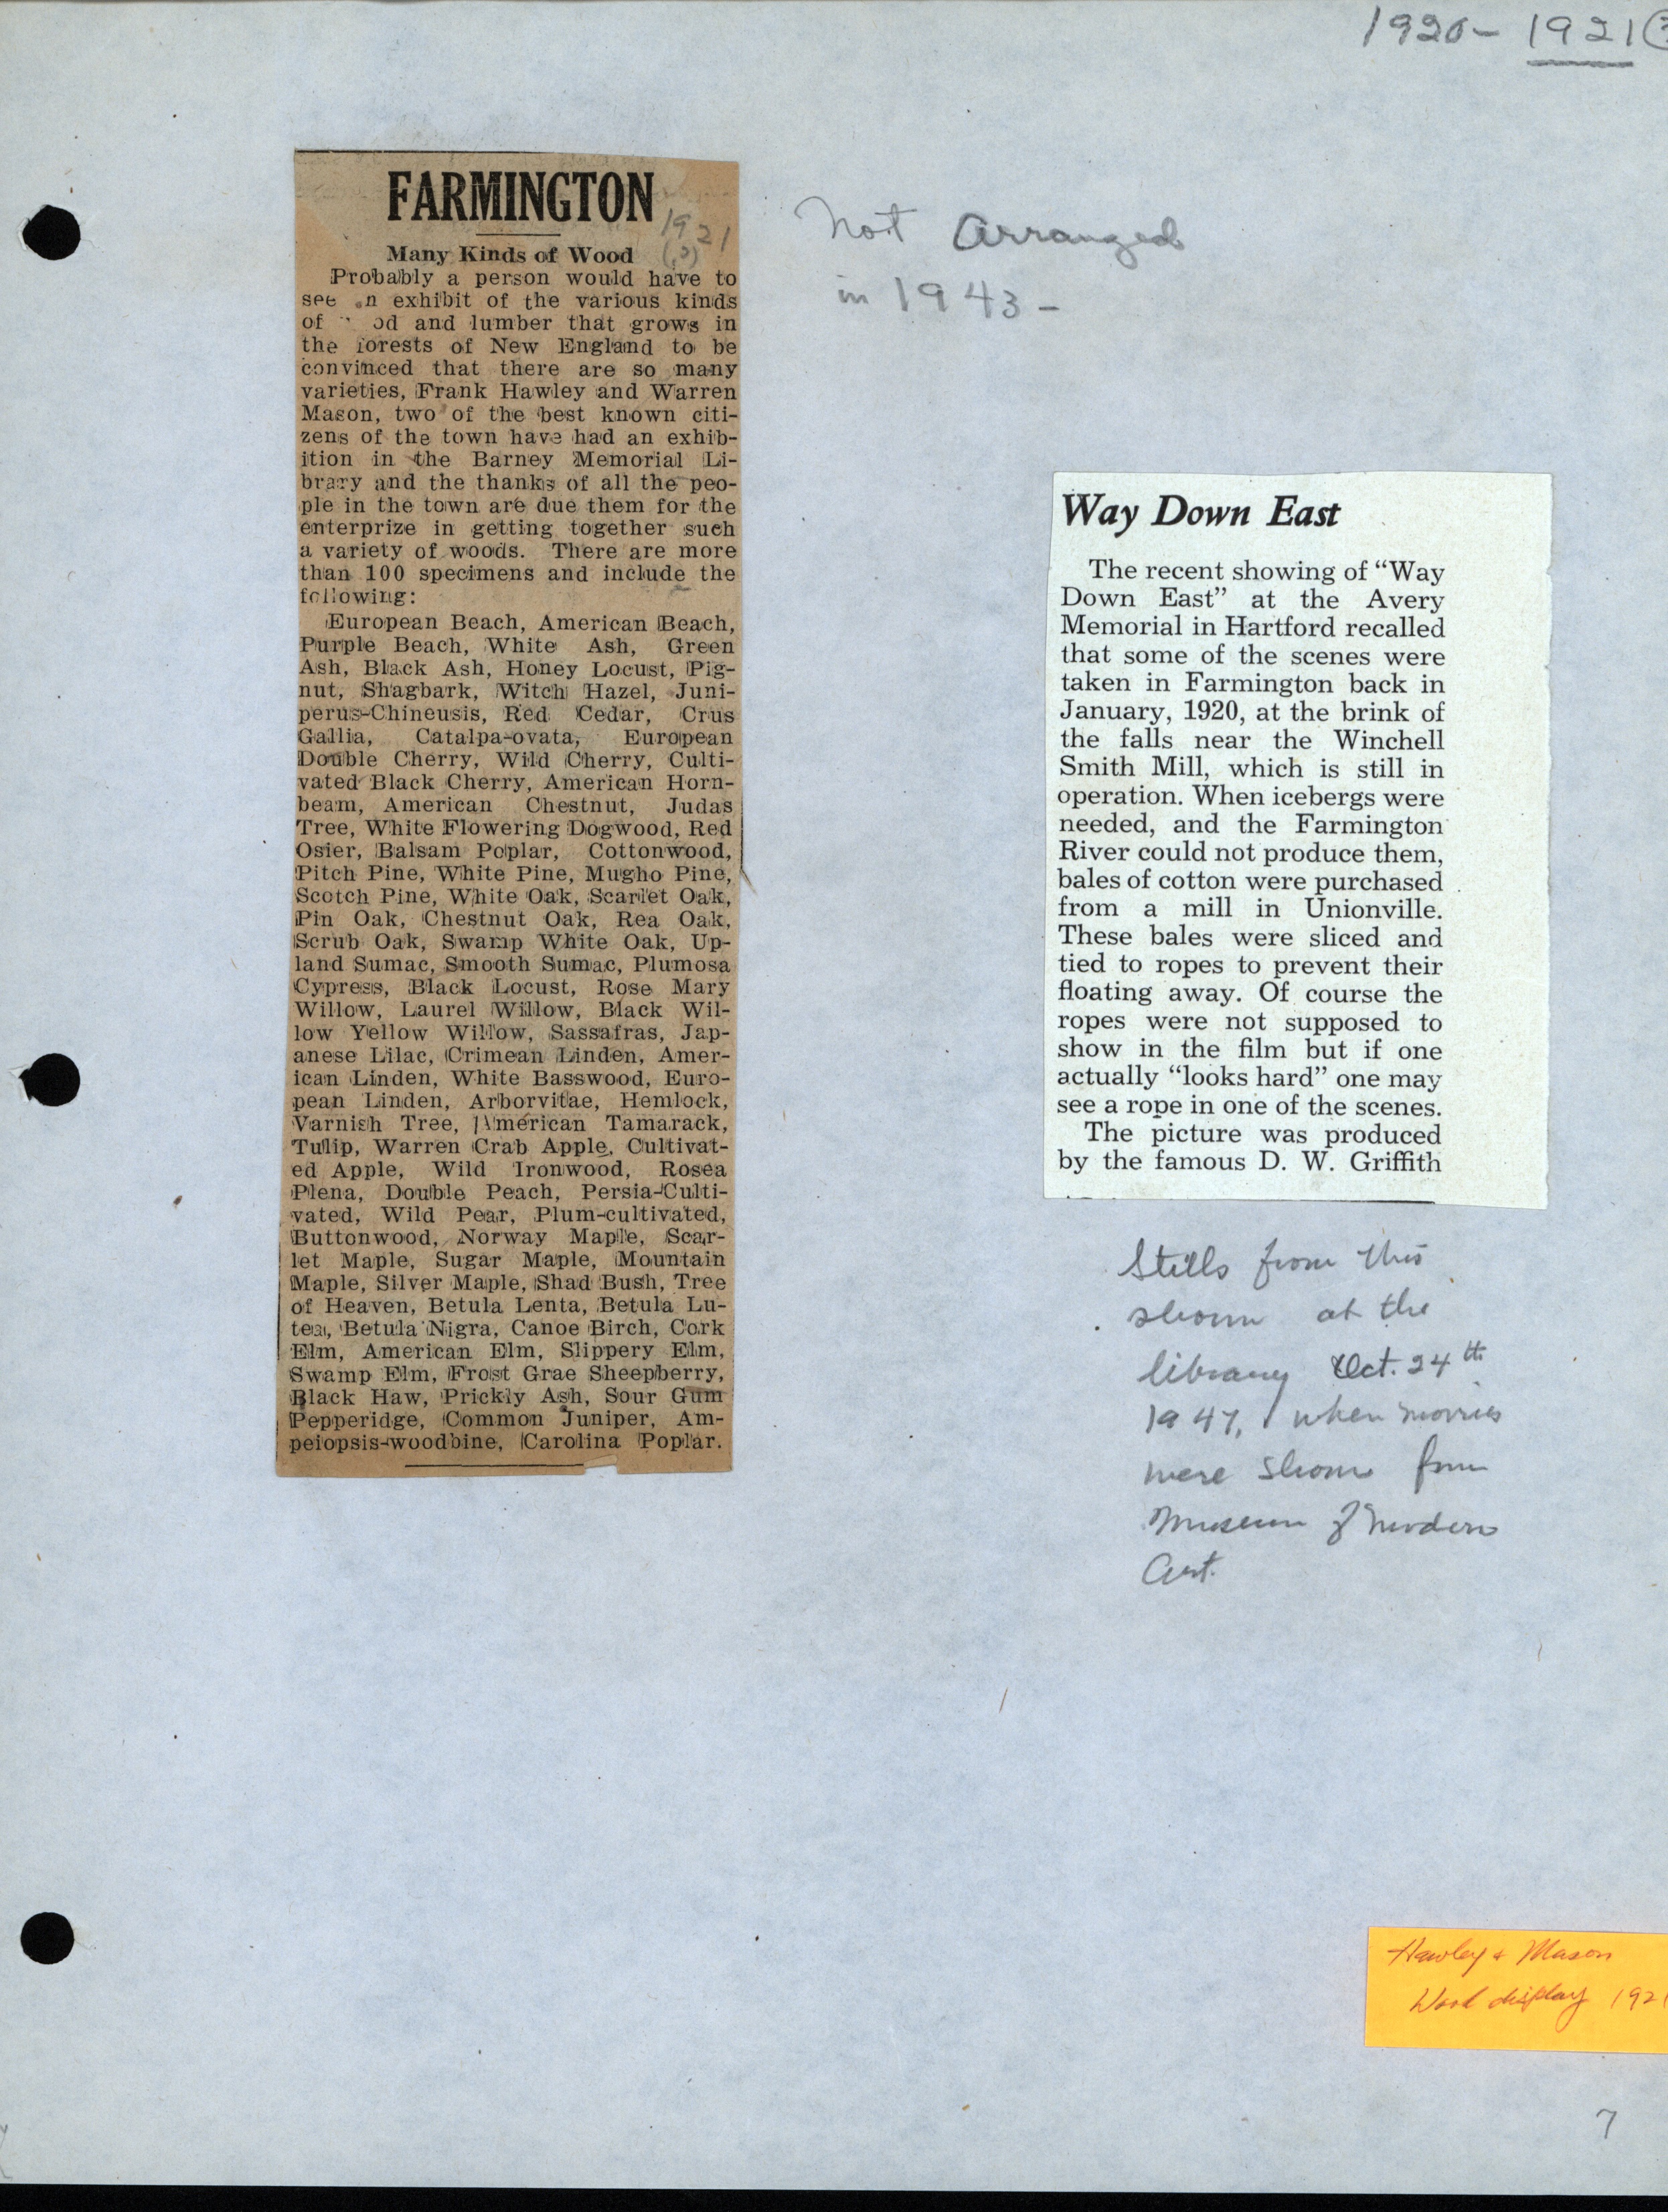 1920-1921
FARMINGTON
1921
(?)
Many Kinds of Wood
Probably a person would have to
see n exhibit of the various kinds
of od and lumber that grows in
the forests of New England to be
convinced that there are so many
varieties, Frank Hawley and Warren
Mason, two of the best known citi-
zens of the town have had an exhib-
ition in the Barney Memorial Li-
brary and the thanks of all the peo-
ple in the town are due them for the
enterprize in getting together such
a variety of woods. There are more
than 100 specimens and include the
following:
European Beach, American Beach,
Purple Beach, White Ash, Green
Ash, Black Ash, Honey Locust, Pig-
nut, Shagbark, Witch Hazel, Juni-
perus-Chineusis, Red Cedar, Crus
Gallia, Catalpa-ovata, European
Double Cherry, Wild Cherry, Culti-
vated Black Cherry, American Horn-
beam, American Chestnut, Judas
Tree, White Flowering Dogwood, Red
Osier, Balsam Poplar, Cottonwood,
Pitch Pine, White Pine, Mugho Pine,
Scotch Pine, White Oak, Scarlet Oak,
Pin Oak, Chestnut Oak, Rea Oak,
Scrub Oak, Swamp White Oak, Up-
land Sumac, Smooth Sumac, Plumosa
Cypress, Black Locust, Rose Mary
Willow, Laurel Willow, Black Wil-
low Yellow Willow, Sassafras, Jap-
anese Lilac, Crimean Linden, Amer-
ican Linden, White Basswood, Euro-
pean Linden, Arborvitae, Hemlock,
Varnish Tree, American Tamarack,
Tulip, Warren Crab Apple, Cultivat-
ed Apple, Wild Ironwood, Rosea
Plena, Double Peach, Persia-Culti-
vated, Wild Pear, Plum-cultivated,
Buttonwood, Norway Maple, Scar-
let Maple, Sugar Maple, Mountain
Maple, Silver Maple, Shad Bush, Tree
of Heaven, Betula Lenta, Betula Lu-
tea, Betula Nigra, Canoe Birch, Cork
Elm, American Elm, Slippery Elm,
Swamp Elm, Frost Grae Sheepberry,
Black Haw, Prickly Ash, Sour Gum
Pepperidge, Common Juniper, Am-
peiopsis-woodbine, Carolina Poplar.
Not Arranged
in 1943-
Way Down East
The recent showing of "Way
Down East" at the Avery
Memorial in Hartford recalled
that some of the scenes were
taken in Farmington back in
January, 1920, at the brink of
the falls near the Winchell
Smith Mill, which is still in
operation. When icebergs were
needed, and the Farmington
River could not produce them,
bales of cotton were purchased
from a mill in Unionville.
These bales were sliced and
tied to ropes to prevent their
floating away. Of course the
ropes were not supposed to
show in the film but if one
actually "looks hard" one may
see a rope in one of the scenes.
The picture was produced
by the famous D. W. Griffith
Stills from this
shown at the
library Oct. 24th
1947, when movies
were shown from
Museum of Modern
Art.
Hawley & Mason
Wood display 1921
7